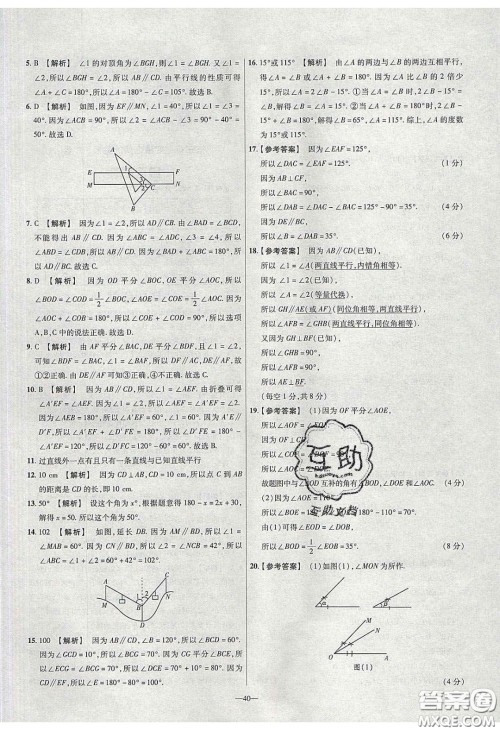 5. B 【解析】 ∠1 的对顶角为∠BGH,则∠1=∠BGH. 又∠1
=∠2,所以∠2=∠BGH,所以 AB∥CD. 由平行线的性质可得
∠A+∠C=180°. 故选 B.
6. D 【解析】 如图,因为 EF∥MN,∠1=40°,所以∠1=∠3=
40°. 因为∠ACB=90°,所以∠2=∠ACB-∠3=90°-40°=
50°. 故选 D.
A
E F
M C N
B
7. C 【解析】 因为∠1=∠2,所以 AB∥CD. 因为∠BAD=∠BCD,
不能得出 AB∥CD. 因为∠ABC=∠ADC,∠3=∠4,所以∠1
=∠2,所以 AB∥CD. 因为∠BAD+∠ABC=180°,所以 AD∥
BC. 故选 C.
8. D 【解析】 因为 OD 平分∠BOC,OE 平分∠AOC,所以
∠COD=∠BOD=1/2∠BOC,∠AOE=∠COE=1/2∠AOC,
因为∠BOC+∠AOC=180°,所以∠BOD+∠COE=90°,所以
A,B,C 中的说法正确. 故选 D.
9. C 【解析】 由 AF 平分∠BAC,DE 平分∠BDF,且∠1=∠2,可
得∠BDF=∠BAC,∠1=∠BDE=∠2=∠FAC,所以 DF∥AC,
①②正确. 由 DE∥AF 可知③正确,④不正确. 故选 C.
10. B 【解析】 因为 AE∥BF,所以∠AEF=∠1. 由折叠可得
∠A'EF=∠AEF=∠1=60°,所以∠AEA'=120°,所以
∠A'ED=180°-∠AEA'=180°-120°=60°. 因为 A'E∥
D'F,所以∠D'FE=180°-∠A'EF=180°-60°=120°. 因为
∠1=60°,所以∠D'FC=120°-60°=60°. 故选 B.
11. 过直线外一点有且只有一条直线与已知直线平行
12. 10 【解析】 因为 CD⊥AB,CD=10 cm,所以点 C 到 AB 的
距离是线段 CD 的长度,即 10 cm.
13. 50° 【解析】 设这个角为 x°,根据题意得 180-x=2x+30,
解得 x=50,所以这个角为 50°.
14. 102 【解析】 如图,延长 DB. 因为 AM∥BD,所以∠1=
∠MAB=60°. 因为 CN∥BD,所以∠2=∠NCB=42°,所以
∠ABC=∠1+∠2=60°+42°=102°.
A C
M B N
D
15. 100 【解析】 因为 AB∥CD,∠B=60°,所以∠BCD=60°.
因为∠GCD=10°,所以∠BCG=70°. 因为 CG 平分∠BCE,所
以∠ECG=∠BCG=70°,所以∠ECD=80°. 因为
CD∥EF,所以∠E=180°-80°=100°.
16. 15°或 115° 【解析】 由∠A 的两边与∠B 的两边互相平行,
得∠A=∠B 或∠A+∠B=180°. 因为∠A 比∠B 的 2 倍少
15°,所以∠A=2∠B-15°. ①当∠A=∠B 时,∠B=2∠B-15°,
解得∠B=15°,所以∠A=15°;②当∠A+∠B=180°时,2∠B-15°+
∠B=180°,解得∠B=65°,所以∠A=115°. 综上,∠A 的度数
为 15°或 115°.
17. 【参考答案】 因为∠EAF=125°,
所以∠DAC=∠EAF=125°. (1 分)
因为 AB⊥CF,
所以∠BAC=90°,
所以∠DAB=∠DAC-∠BAC=125°-90°=35°. (4 分)
因为 DE∥BC,
所以∠ABC=∠DAB=35°. (6 分)
18. 【参考答案】 因为 AB∥CD(已知),
所以∠1=∠A(两直线平行,内错角相等),
所以∠2=∠A(等量代换),
所以 GH∥AE(或 AF)(同位角相等,两直线平行),
所以∠AFB=∠GHB(两直线平行,同位角相等).
又因为
所以∠GHB=90°,
所以∠AFB=90°,
所以 AE⊥BF.
(每空 1 分,共 8 分)
19. 【参考答案】 (1)因为 OF 平分∠AOE,
所以∠AOF=∠EOF
因为 OF⊥CD,
(2)因为
由(1)可得∠EOD=∠DOB,
所以∠BOD=1/2∠EOB=35°. (8 分)
20. 【参考答案】 (1)如图(1),∠MON 为所作.
M
N
O
图(1)
(4 分)
—40—
互助
互助文档
答案圈
MXQE.COM